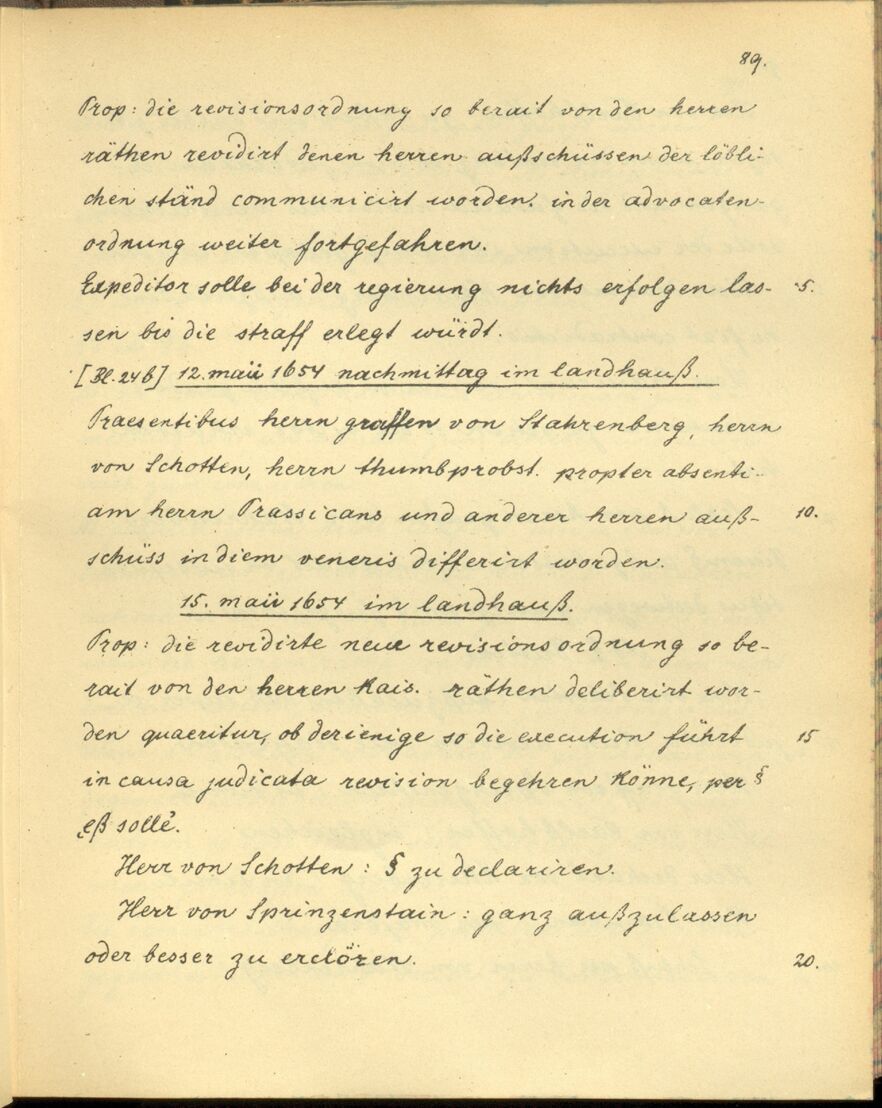 89.
Prop: die revisionsordnung so berait von den herren
räthen revidirt denen herren außschüssen der löbli-
chen ständ communicirt worden. in der advocaten-
ordnung weiter fortgefahren.
Expeditor solle bei der regierung nichts erfolgen las- 5.
sen bis die straff erlegt würdt.
[Bl. 24b] 12. maii 1654 nachmittag im landhauß.
Praesentibus herrn graffen von Stahrenberg, herrn
von Schotten, herrn thumbprobst. propter absenti-
am herrn Prassicans und anderer herren auß- 10.
schüss in diem veneris differirt worden.
15. maii 1654 im landhauß.
Prop: die revidirte neue revisionsordnung so be-
rait von den herren kais. räthen deliberirt wor-
den quaeritur, ob derienige so die execution führt 15
in causa judicata revision begehren könne, per §
„eß solle“.
Herr von Schotten: § zu declariren.
Herr von Sprinzenstain: ganz außzulassen
oder besser zu erclären. 20.